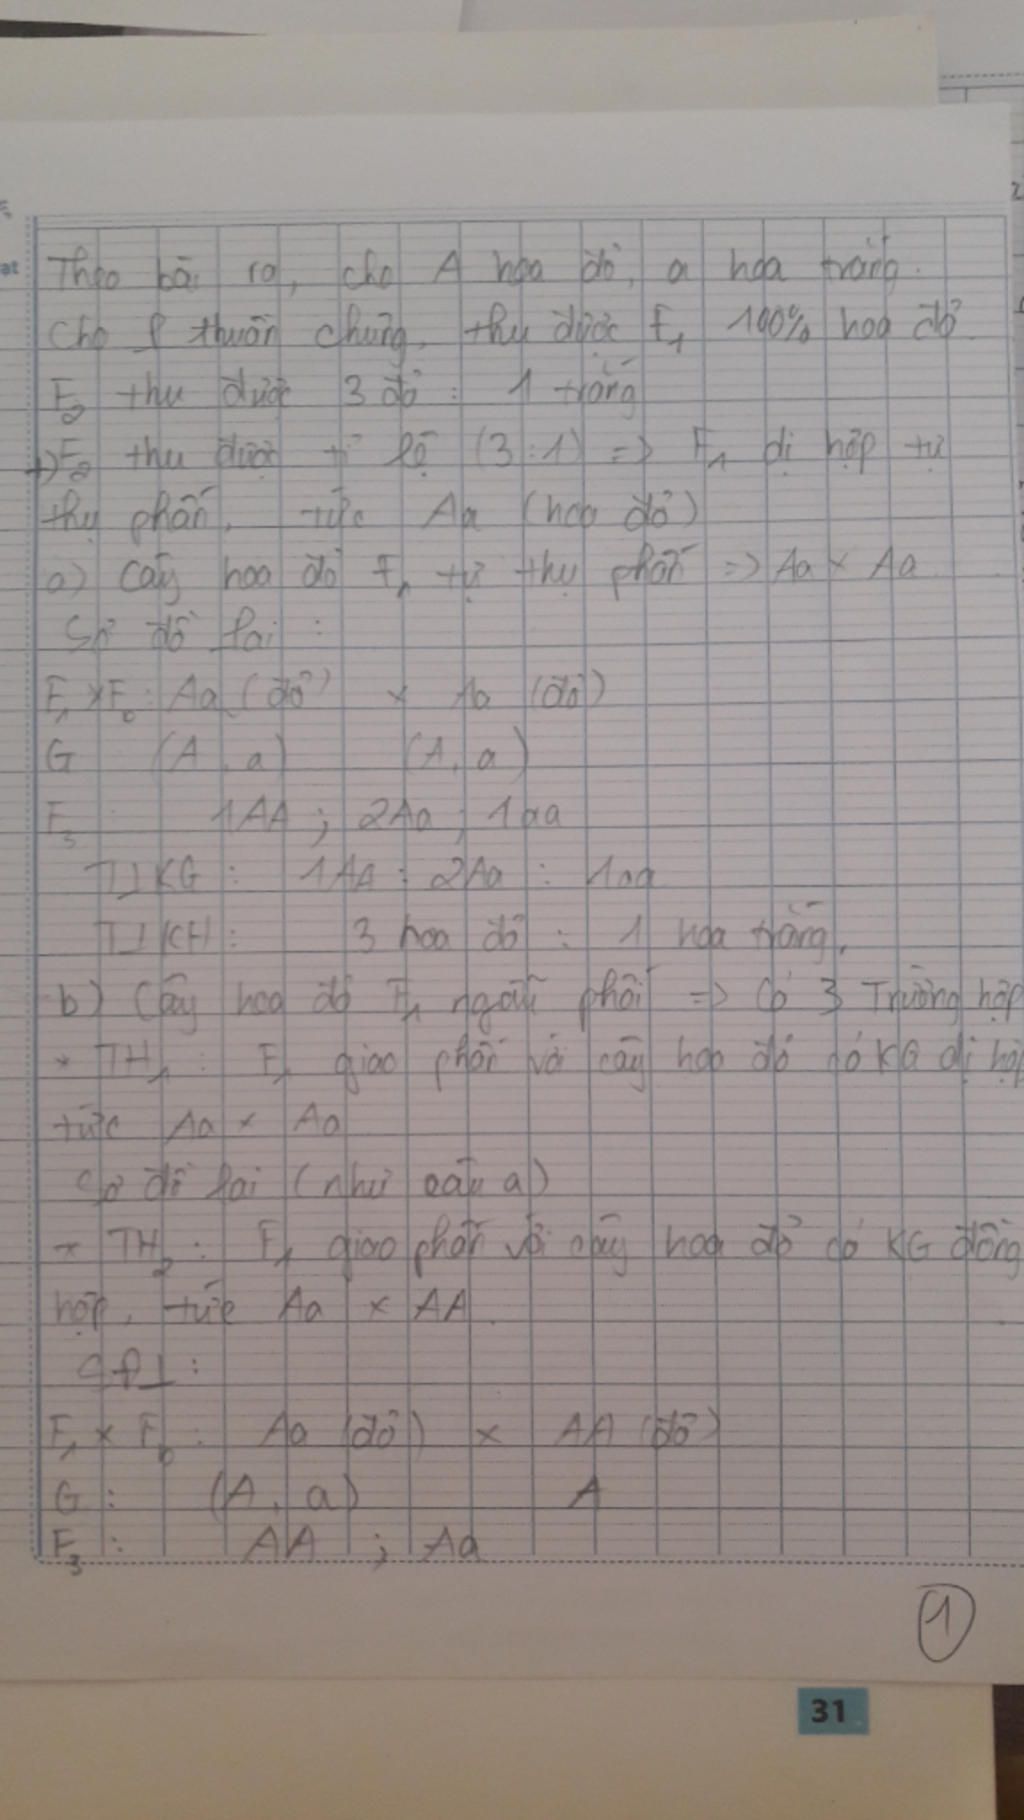 Theo bài ra, cho A hoa đỏ, a hoa trắng.
Cho P thuần chủng, thu được F1 100% hoa đỏ
F2 thu được 3 đỏ : 1 trắng
+) F2 thu được tỉ lệ (3:1) => F1 dị hợp tự
thụ phấn, tức Aa (hoa đỏ)
a) Cây hoa đỏ F1 tự thụ phấn => Aa x Aa
Sơ đồ lai :
F1 x F1 : Aa (đỏ) x Aa (đỏ)
G (A, a) (A, a)
F3 1AA ; 2Aa ; 1aa
TLKG : 1AA : 2Aa : 1aa
TLKH : 3 hoa đỏ : 1 hoa trắng.
b) Cây hoa đỏ F1 ngẫu phối => Có 3 Trường hợp
* TH1 : F1 giao phấn với cây hoa đỏ có KG dị hợp
tức Aa x Aa
Sơ đồ lai (như câu a)
* TH2 : F1 giao phấn với cây hoa đỏ có KG đồng
hợp, tức Aa x AA
SĐL :
F1 x : Aa (đỏ) x AA (đỏ)
G : (A, a) A
F3 : AA ; Aa
1
31